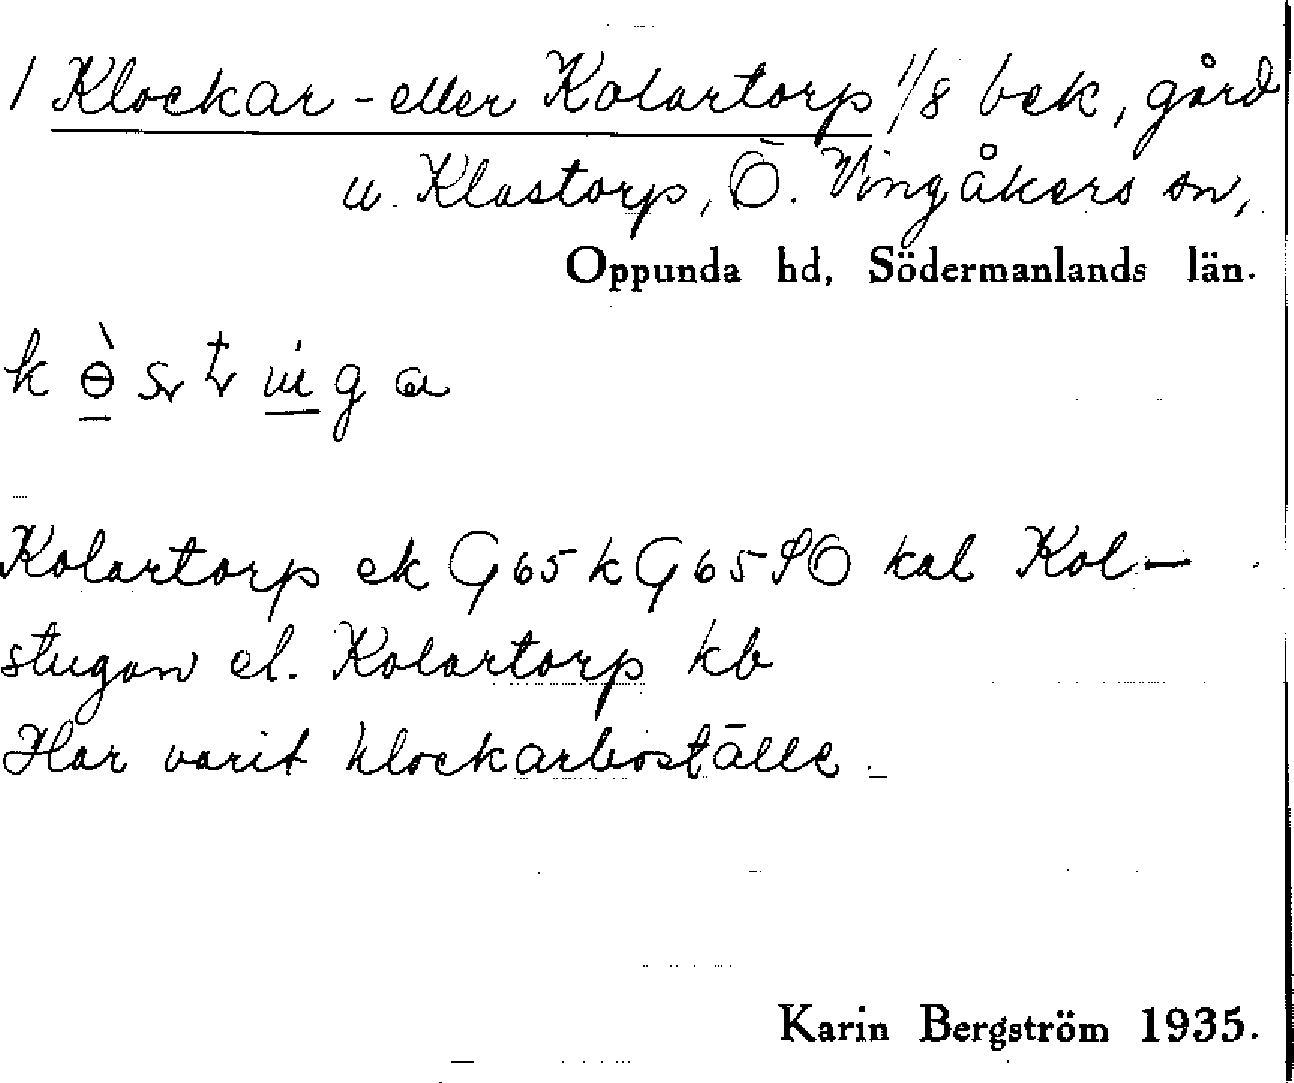 1 Klockar- eller Kolartorp 1/8 bek, gård
u. Klastorp, Ö. Vingåkers sn,
Oppunda hd, Södermanlands län.
Kolartorp ek G65 k G65 SO kal Kol-
stugan el. Kolartorp kb
Har varit klockarboställe.
Karin Bergström 1935.